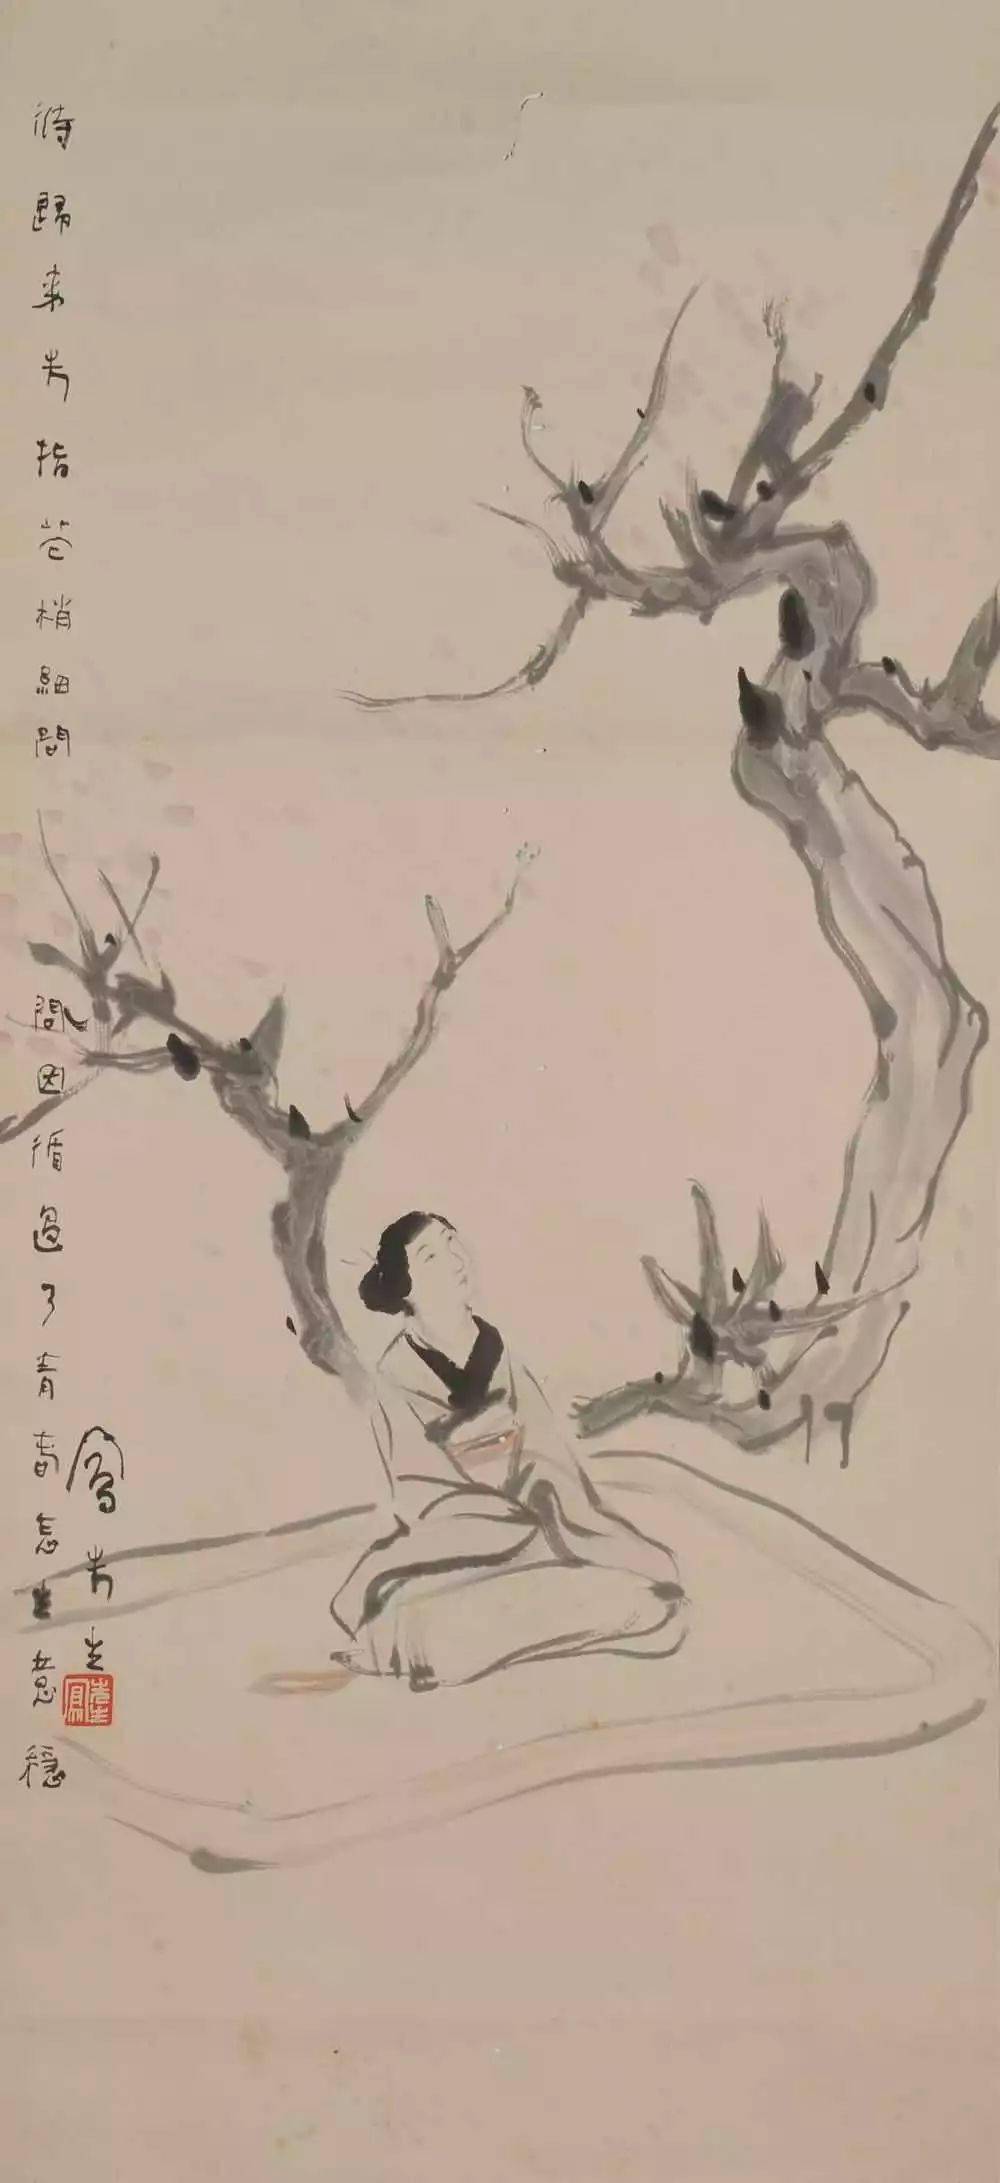 待歸來先指花梢細問 問因循過了青春怎生意穩
鳳先生
鳳先生